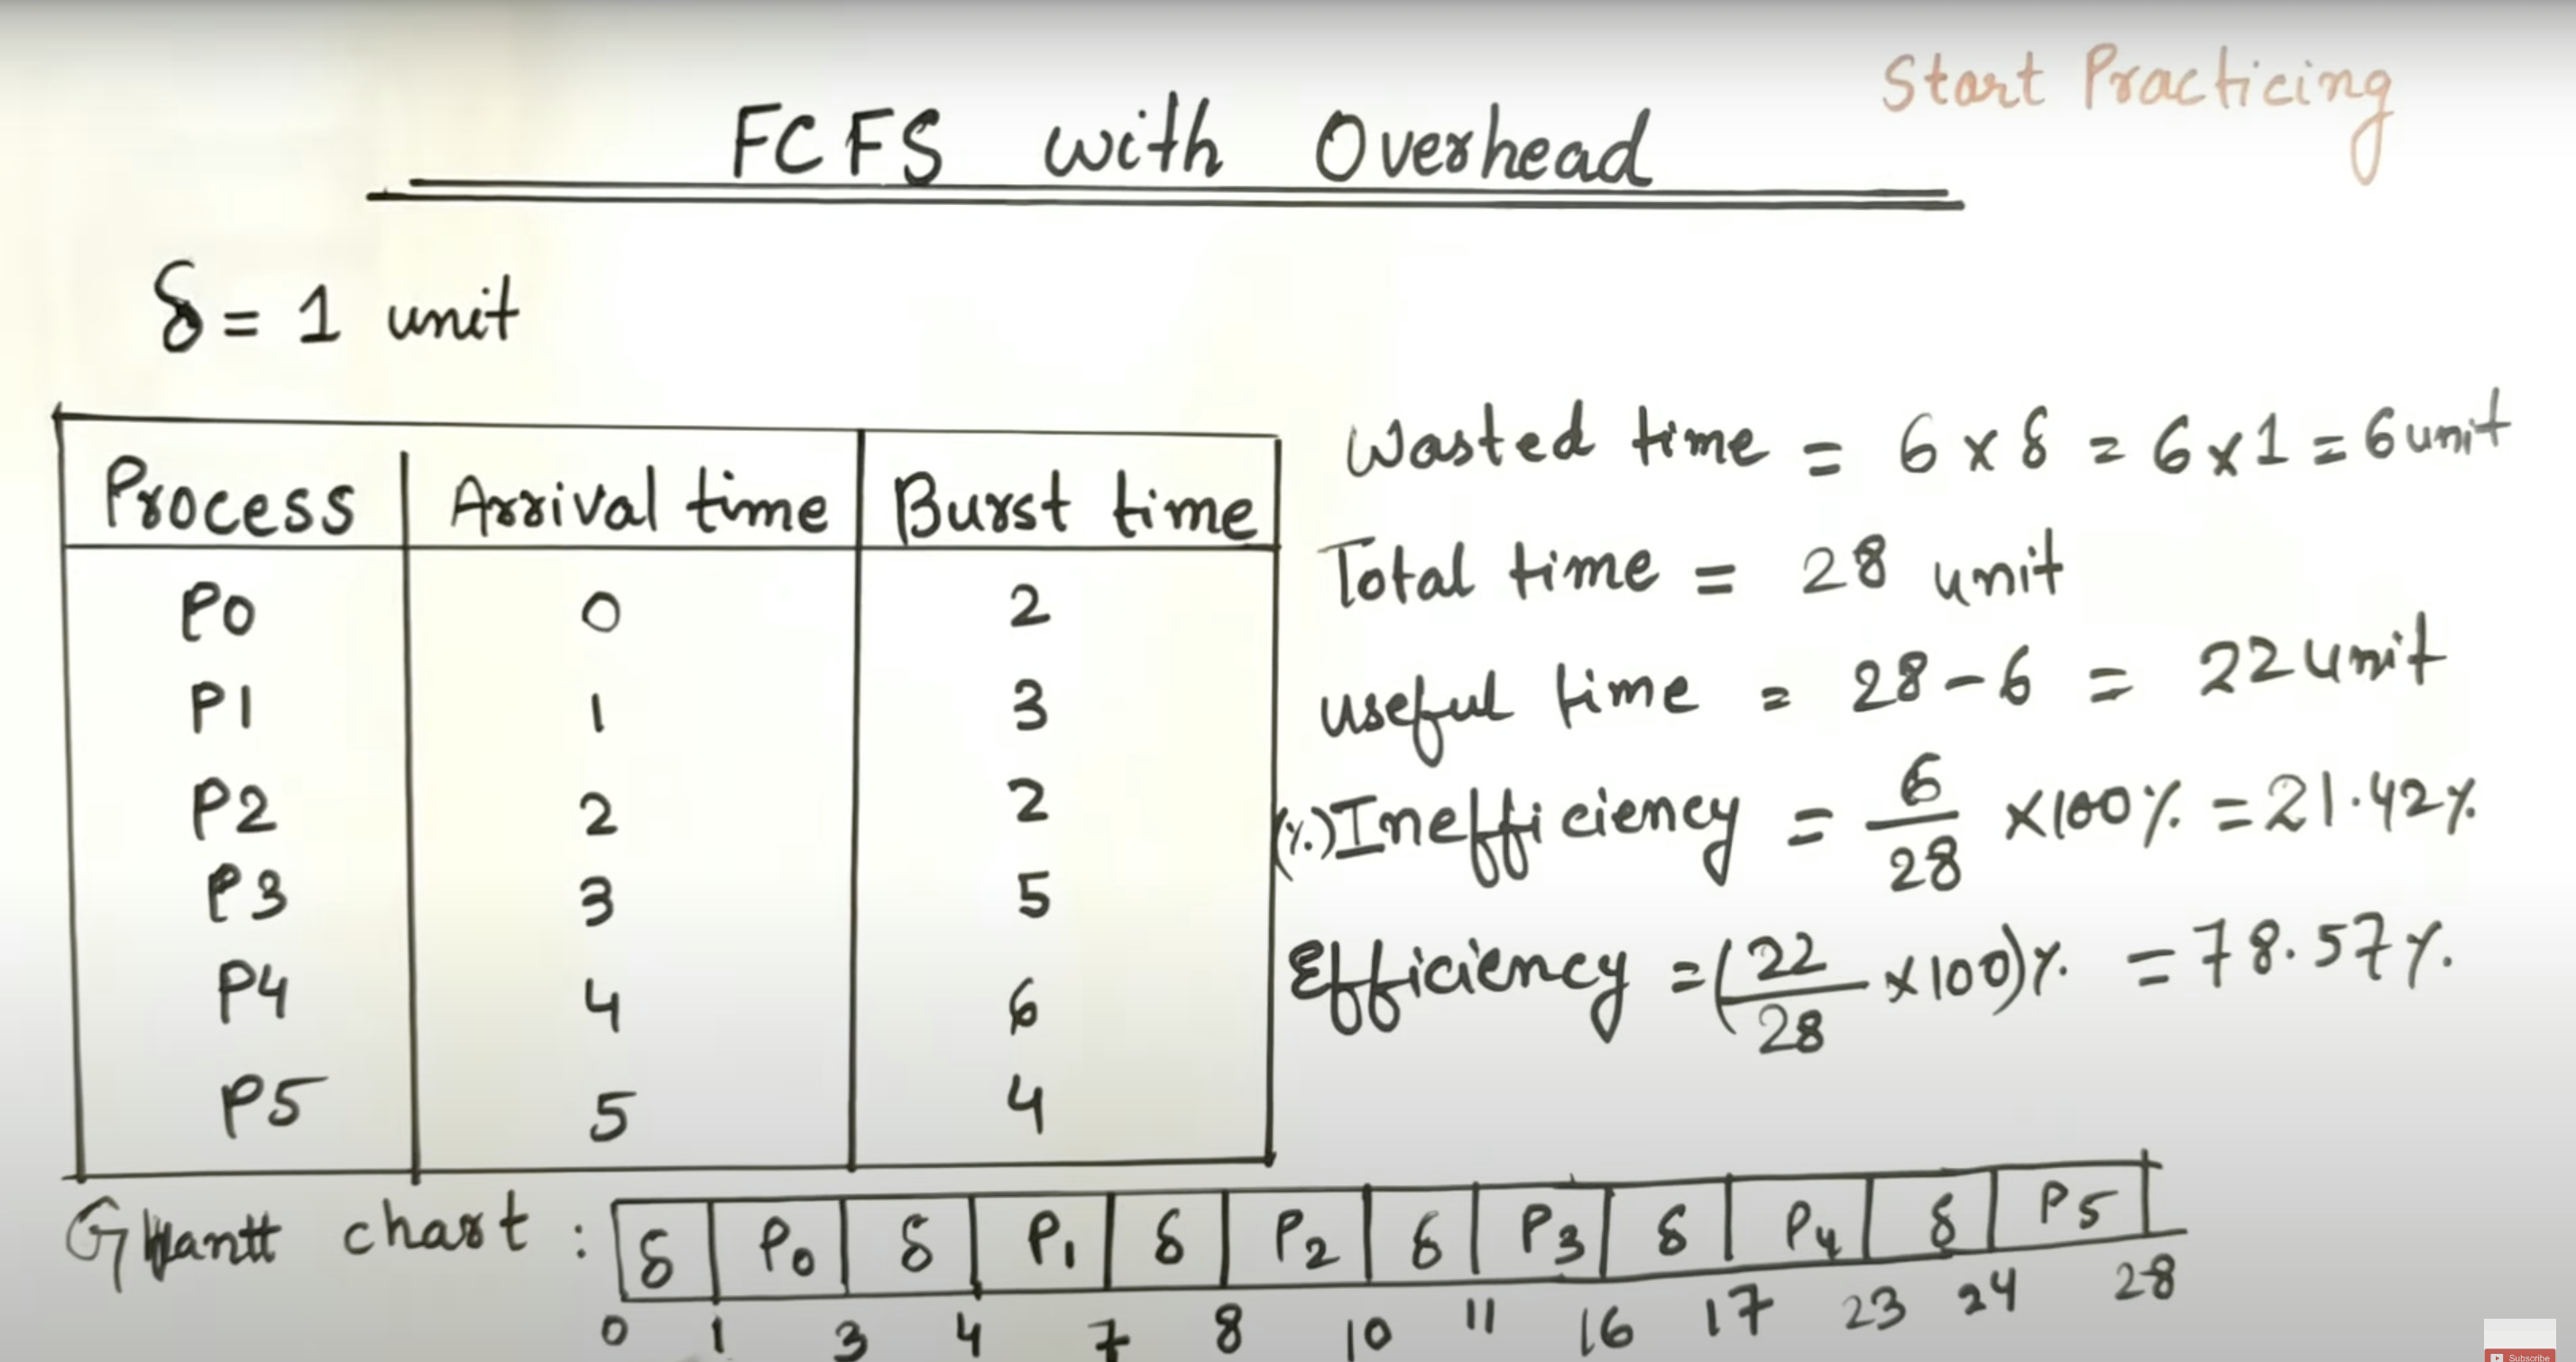 Start Practicing
FCFS with Overhead
δ = 1 unit
Process Arrival time Burst time
P0 0 2
P1 1 3
P2 2 2
P3 3 5
P4 4 6
P5 5 4
Wasted time = 6 x δ = 6 x 1 = 6 unit
Total time = 28 unit
useful time = 28 - 6 = 22 unit
(%) Inefficiency = 6/28 x 100 % = 21.42 %
Efficiency = (22/28 x 100) % = 78.57 %
Ghantt chart : δ P0 δ P1 δ P2 δ P3 δ P4 δ P5
0 1 3 4 7 8 10 11 16 17 23 24 28
Subscribe